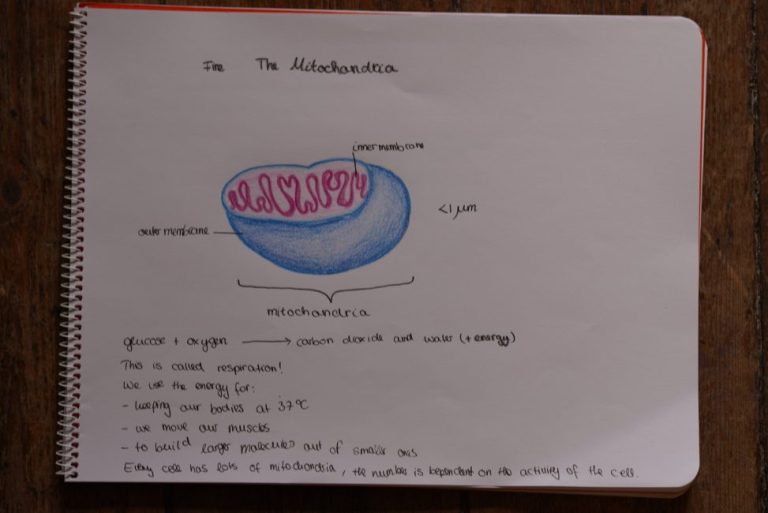 Fire The Mitochondria
inner membrane
<1 μm
outer membrane
mitochondria
glucose + oxygen ⟶ carbon dioxide and water (+ energy)
This is called respiration!
We use the energy for:
- keeping our bodies at 37°C
- we move our muscles
- to build larger molecules out of smaller ones
Every cell has lots of mitochondria, the number is dependent on the activity of the cell.